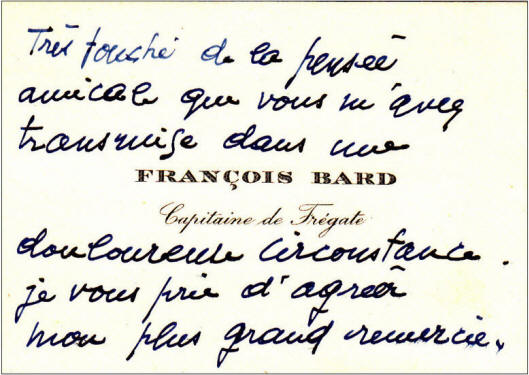 Très touché de la pensée
amicale que vous m'avez
transmise dans une
FRANÇOIS BARD
Capitaine de Frégate
douloureuse circonstance.
je vous prie d'agréer
mon plus grand remercie.